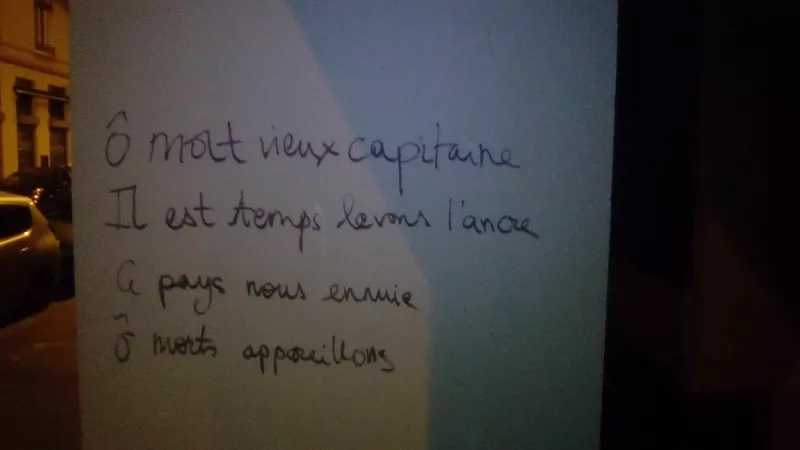 Ô mort vieux capitaine
Il est temps levons l'ancre
Ce pays nous ennuie
Ô morts appareillons